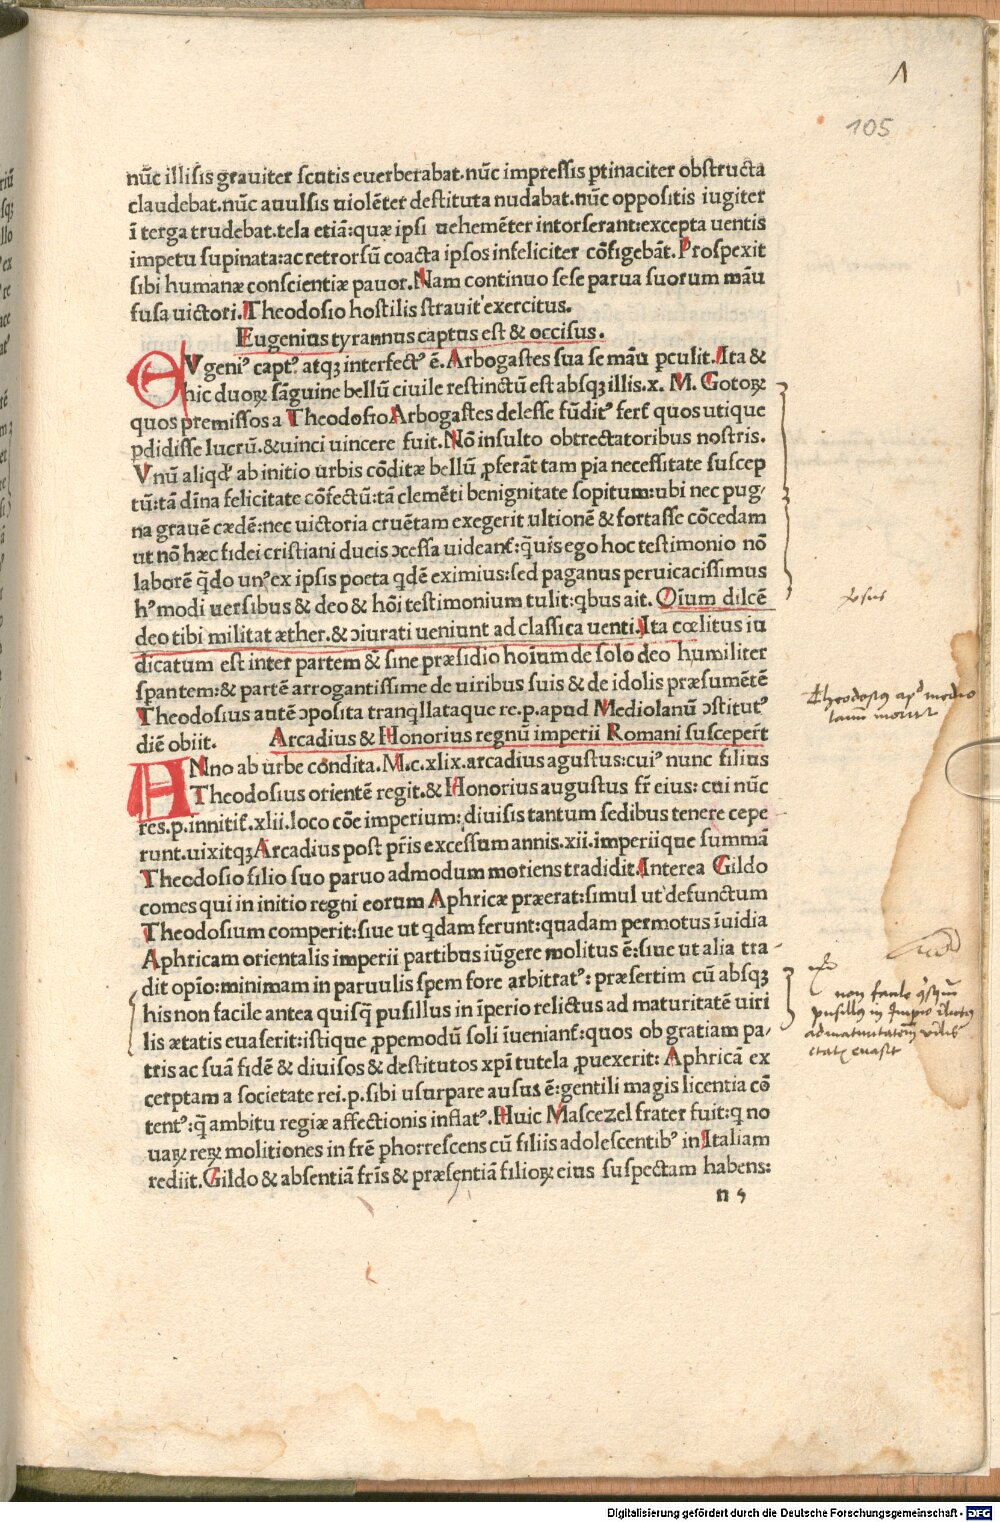 105
nūc illisis grauiter scutis euerberabat.nūc impressis ꝑtinaciter obstructa
claudebat.nūc auulsis uiolēter destituta nudabat.nūc oppositis iugiter
ī terga trudebat.tela etiā:quæ ipsi uehemēter intorserant:excepta uentis
impetu supinata:ac retrorsū coacta ipsos infeliciter cōfigebāt.Prospexit
sibi humanæ conscientiæ pauor.Nam continuo sese parua suorum māu
fusa uictori.Theodosio hostilis strauit' exercitus.
Eugenius tyrannus captus est & occisus.
EVgeniꝰ captꝰ atqꝫ interfectꝰ ē.Arbogastes sua se māu ꝑculit.Ita &
hic duoꝝ sāguine bellū ciuile restinctū est absqꝫ illis.x. M. Gotoꝝ
quos premissos a Theodosio Arbogastes delesse fūditꝰ fert̄ quos utique
ꝑdidisse lucrū.& uinci uincere fuit.Nō insulto obtrectatoribus nostris.
Vnū aliqd' ab initio urbis cōditæ bellū ꝓferāt tam pia necessitate suscep
tū:tā dīna felicitate cōfectū:tā clemēti benignitate sopitum:ubi nec pug/
na grauē cædē:nec uictoria cruētam exegerit ultionē & fortasse cōcedam
ut nō hæc fidei cristiani ducis ꝯcessa uideant̄:q̄uis ego hoc testimonio nō
laborē q̄do unꝰ ex ipsis poeta qdē eximius:sed paganus peruicacissimus
hꝰmodi uersibus & deo & hōi testimonium tulit:qbus ait. Oīum dilcē
deo tibi militat æther.& ꝯiurati ueniunt ad classica uenti.Ita cœlitus iu
dicatum est inter partem & sine præsidio hoīum de solo deo humiliter
sꝑantem:& partē arrogantissime de uiribus suis & de idolis præsumētē
Theodosius autē ꝯposita tranqllataque re.p.apud Mediolanū ꝯstitutꝰ
diē obiit. Arcadius & Honorius regnū imperii Romani susceper̄t
ANno ab urbe condita.M.c.xlix.arcadius agustus:cuiꝰ nunc filius
Theodosius orientē regit.& Honorius augustus fr̄ eius: cui nūc
res.p.innitit̄.xlii.loco cōe imperium: diuisis tantum sedibus tenere cepe
runt.uixitqꝫ Arcadius post pr̄is excessum annis.xii.imperiique summā
Theodosio filio suo paruo admodum moriens tradidit.Interea Gildo
comes qui in initio regni eorum Aphricæ præerat:simul ut defunctum
Theodosium comperit:siue ut qdam ferunt:quadam permotus īuidia
Aphricam orientalis imperii partibus iūgere molitus ē:siue ut alia tra
dit opīo:minimam in paruulis spem fore arbitratꝰ: præsertim cū absqꝫ
his non facile antea quisq̄ pusillus in īperio relictus ad maturitatē uiri
lis ætatis euaserit:istique ꝓpemodū soli īueniant̄:quos ob gratiam pa/
tris ac suā fidē & diuisos & destitutos xp̄i tutela ꝓuexerit: Aphricā ex
cerptam a societate rei.p.sibi usurpare ausus ē:gentili magis licentia cō
tentꝰ:q̄ ambitu regiæ affectionis inflatꝰ.Huic Mascezel frater fuit:q no
uaꝝ reꝝ molitiones in frē ꝑhorrescens cū filiis adolescentibꝰ in Italiam
rediit.Gildo & absentiā fr̄is & præsentiā filioꝝ eius suspectam habens:
n 5
Theodosius apd medio
lanū moritr
non facile qsquā
pusillus in Imperio relictus
ad maturitatem virilis
etatis evasit
Digitalisierung gefördert durch die Deutsche Forschungsgemeinschaft - DFG